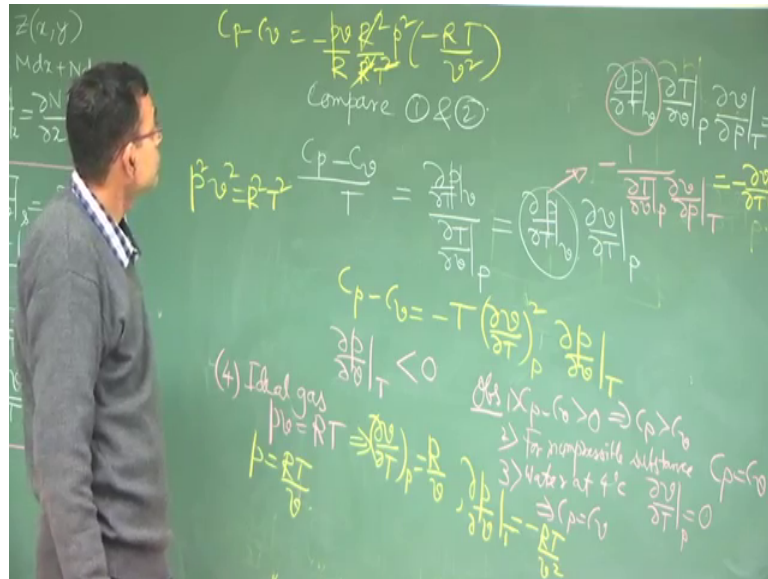 Z(x,y)
Mdx+Nd
∂N
Cp-Cv = -pv/R R²/R²T² p² (-RT/v²)
Compare ① & ②
∂p/∂T|v ∂T/∂v|p ∂v/∂p|T =
p²v²=R²T²
Cp-Cv/T = ∂p/∂T|v / ∂T/∂v|p = ∂p/∂T|v ∂v/∂T|p
-1/∂T/∂v|p ∂v/∂p|T = -∂v/∂T
Cp-Cv = -T (∂v/∂T)²p ∂p/∂v|T
∂p/∂v|T < 0
(4) Ideal gas
pv = RT ⇒ (∂v/∂T)p = R/v
p = RT/v.
, ∂p/∂v|T = -RT/v²
Obs: 1> Cp-Cv>0 ⇒ Cp>Cv
2> For incompressible substance Cp=Cv
3> Water at 4°c ∂v/∂T|p = 0
⇒ Cp=Cv